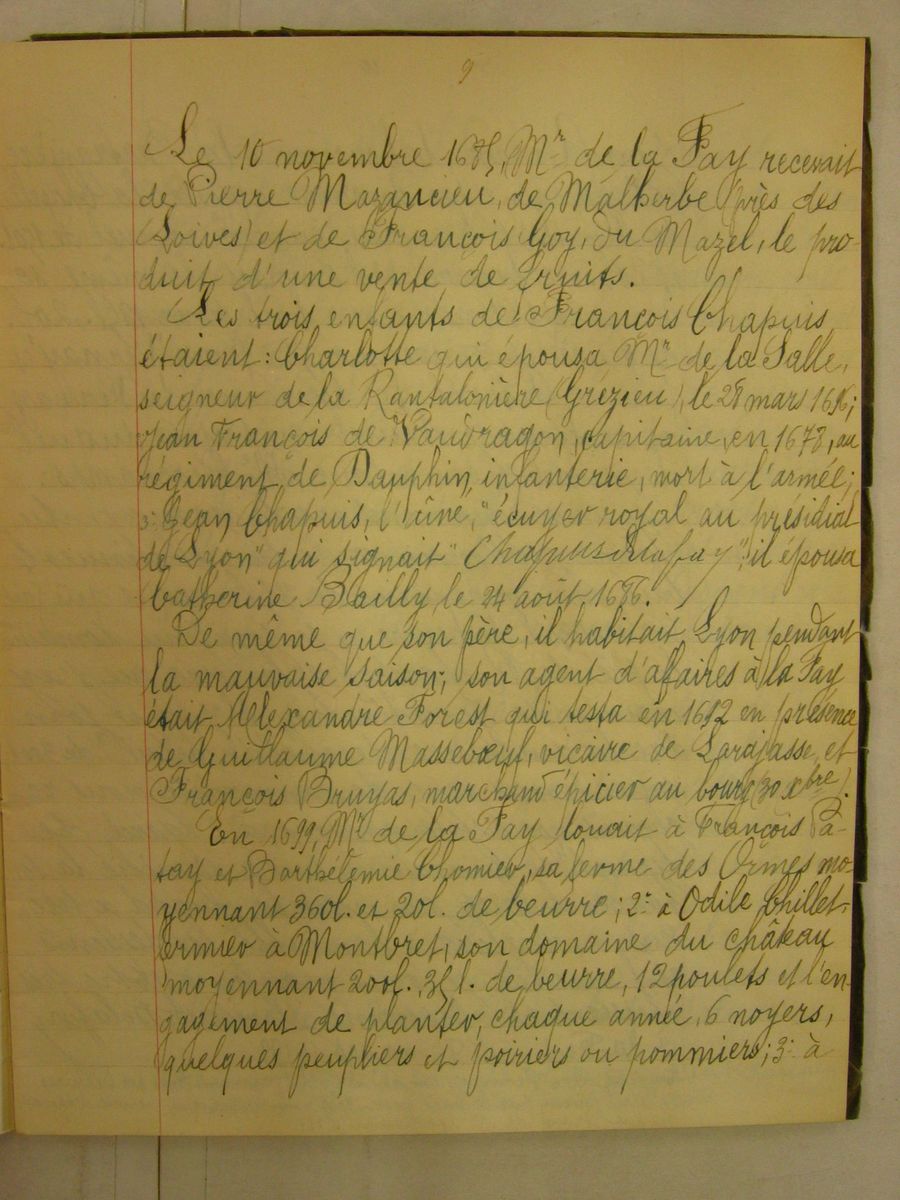 9
Le 10 novembre 1685, Mr de la Fay recevait
de Pierre Mazancieu, de Malherbe (près des
Loives) et de François Goy, du Mazel, le pro-
duit d'une vente de fruits.
Les trois enfants de François Chapuis
étaient: Charlotte qui épousa Mr de la Salle,
seigneur de la Rantalonière (Grézieu), le 28 mars 1696;
Jean François de Vaudragon, capitaine, en 1678, au
régiment de Dauphin, infanterie, mort à l'armée;
3° Jean Chapuis, l'"écuyer royal au présidial
de Lyon" qui signait "Chapuisdelafay"; il épousa
Catherine Bailly le 24 août 1686.
De même que son père, il habitait Lyon pendant
la mauvaise saison; son agent d'affaires à la Fay
était Alexandre Forest qui testa en 1692 en présence
de Guillaume Massebœuf, vicaire de Larajasse et
François Bruyas, marchand épicier au bourg (30 Xbre).
En 1699, Mr de la Fay louait à François Pâ-
tay et Barthélemie Chomier, sa ferme des Ormes mo-
yennant 360l. et 20l. de beurre; 2° à Odile Chillet,
ermier à Montbret, son domaine du château
moyennant 200l. 35 l. de beurre, 12 poulets et l'en-
gagement de planter, chaque année, 6 noyers,
quelques peupliers et poiriers ou pommiers; 3° à